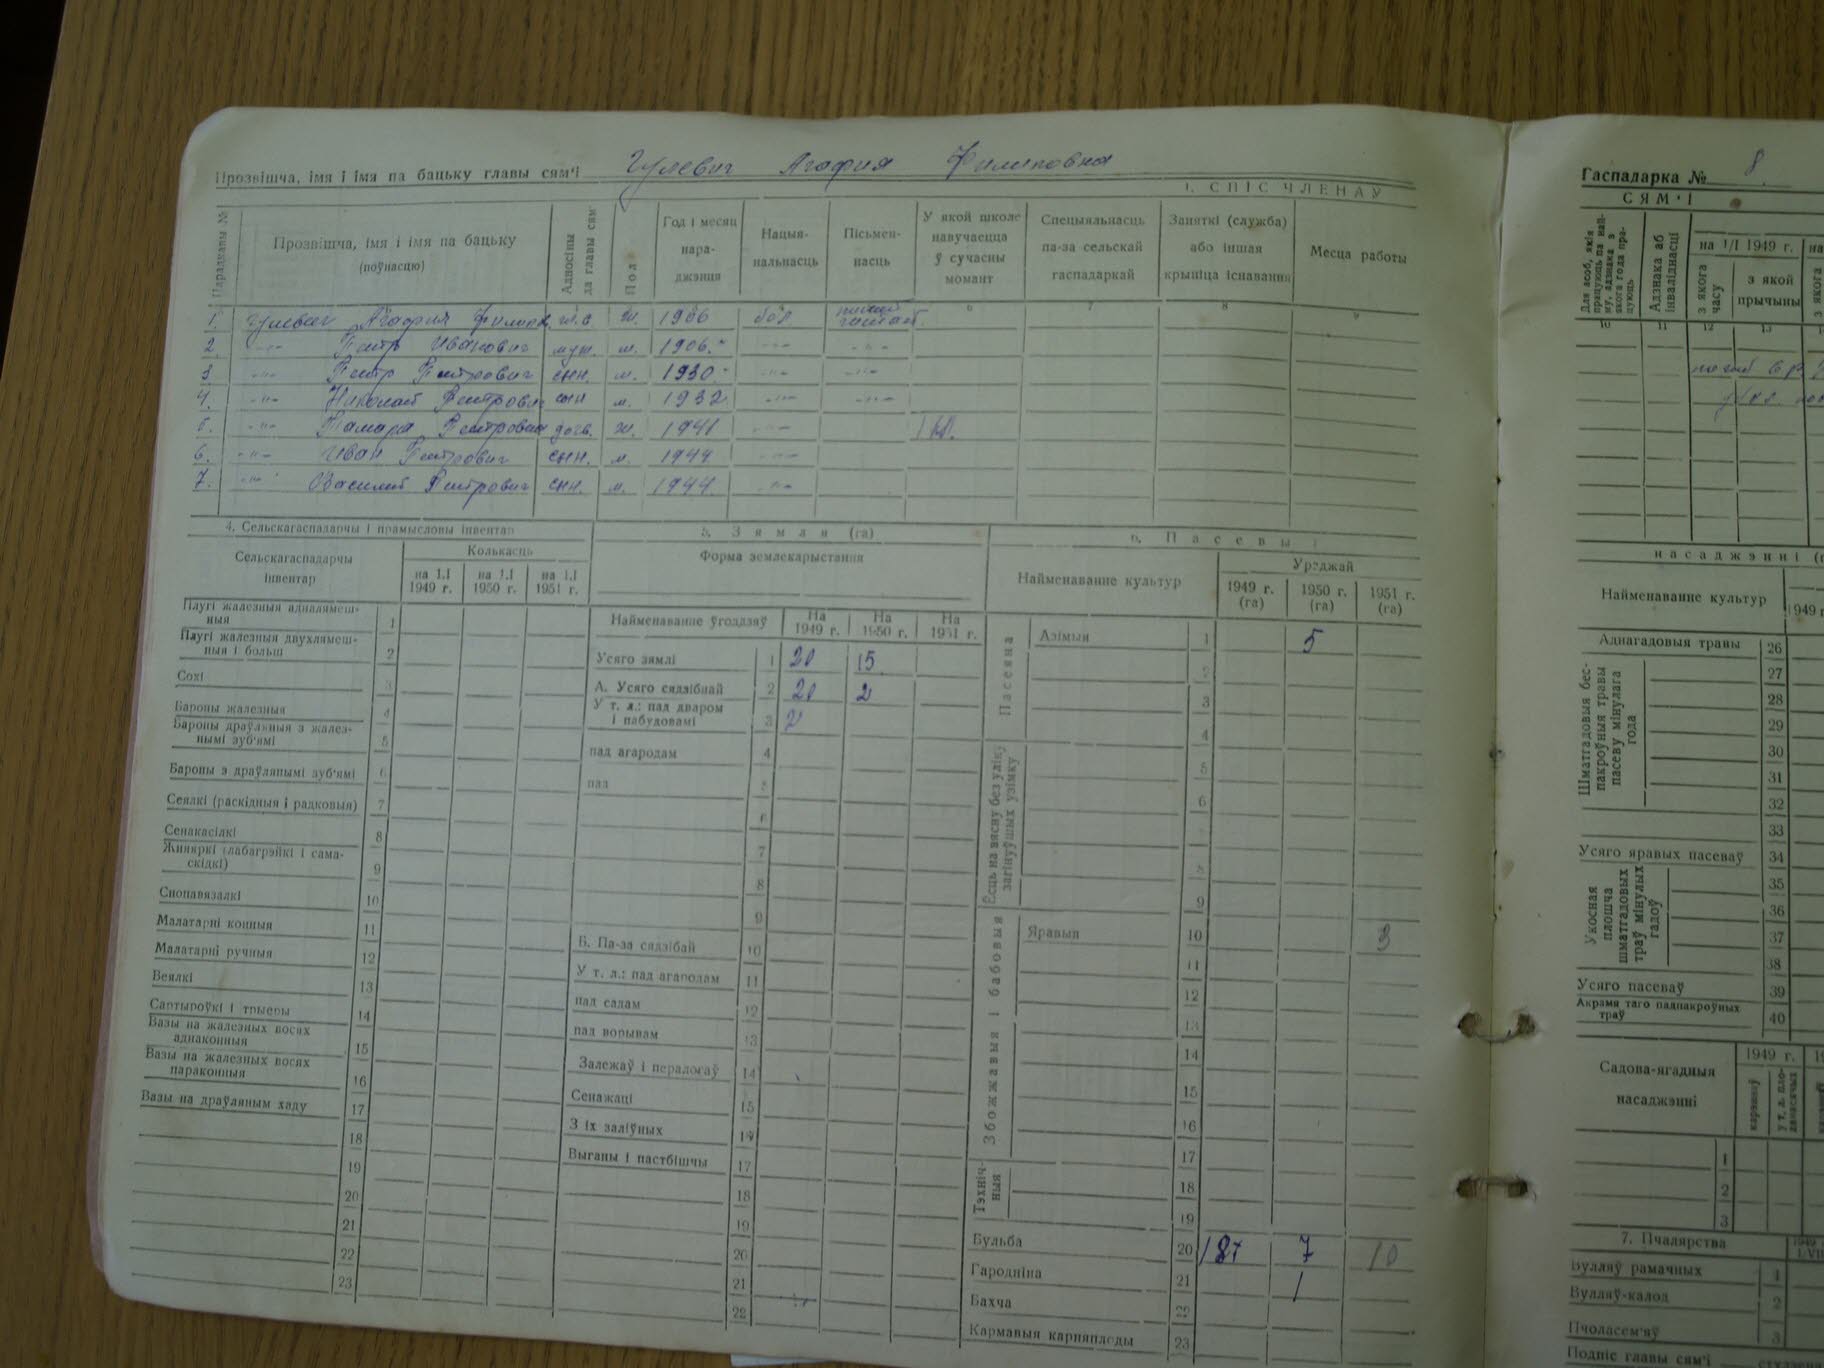 Прозвішча, імя і імя па бацьку главы сям'і Гулевич Агафия Филиповна
1. СПІС ЧЛЕНАЎ
Парадкавы № Прозвішча, імя і імя па бацьку (поўнасцю) Адносіны да главы сям' Пол Год і месяц нараджэння Нацыянальнасць Пісьменнасць У якой школе навучаецца ў сучасны момант Спецыяльнасць па-за сельскай гаспадаркай Заняткі (служба) або іншая крыніца існавання Месца работы
6 7 8 9
1. Гулевич Агафия Филипов. гл.с ж. 1906 бел.
2. -"- Петр Иванович муж. м. 1906. -"- -"-
3 -"- Петр Петрович сын. м. 1930. -"- -"-
4. -"- Николай Петрович сын м. 1932 -"- -"-
5. -"- Тамара Петровна доч. ж. 1941 -"- 1 кл.
6. -"- Иван Петрович сын. м. 1944 -"-
7. -"- Василий Петрович сын. м. 1944 -"-
4. Сельскагаспадарчы і прамысловы інвентар
Сельскагаспадарчы інвентар Колькасць
на 1.I 1949 г. на 1.I 1950 г. на 1.I 1951 г.
Плугі жалезныя адналямешныя 1
Плугі жалезныя двухлямешныя і больш 2
Сохі 3
Бароны жалезныя 4
Бароны драўляныя з жалезнымі зуб'ямі 5
Бароны з драўлянымі зуб'ямі 6
Сеялкі (раскідныя і радковыя) 7
Сенакасілкі 8
Жняяркі (лабагрэйкі і самаскідкі) 9
Снопавязалкі 10
Малатарні конныя 11
Малатарні ручныя 12
Веялкі 13
Сартыроўкі і трыеры 14
Вазы на жалезных восях аднаконныя 15
Вазы на жалезных восях параконныя 16
Вазы на драўляным хаду 17
18
19
20
21
22
23
5. Зямля (га)
Форма землекарыстання
Найменаванне ўгоддзяў На 1949 г. На 1950 г. На 1951 г.
Усяго зямлі 1 20 15
А. Усяго сядзібнай 2 20 2
У т. л.: пад дваром і пабудовамі 3 2
пад агародам 4
пад 5
6
7
8
9
Б. Па-за сядзібай 10
У т. л.: пад агародам 11
пад садам 12
пад ворывам 13
Залежаў і пералогаў 14
Сенажаці 15
З іх заліўных 16
Выганы і пастбішчы 17
18
19
20
21
22
6. Пасевы
Найменаванне культур Ураджай
1949 г. (га) 1950 г. (га) 1951 г. (га)
Пасеяна
Азімыя 1 5
2
3
4
Ёсць на вясну без уліку загінуўшых узімку
5
6
9
Збожжавыя і бабовыя
Яравыя 10 3
11
12
13
14
15
16
17
Тэхнічныя
18
19
Бульба 20 187 7 10
Гародніна 21 1
Бахча 22
Кармавыя карняплоды 23
Гаспадарка № 8
СЯМ'І
Адзнака аб інваліднасці
на 1/I 1949 г.
з якога часу з якой прычыны
10 11 12 13
насаджэнні
Найменаванне культур 1949 г
Аднагадовыя травы 26
Шматгадовыя беспакроўныя травы пасеву мінулага года
27
28
29
30
31
32
33
Усяго яравых пасеваў 34
Укосная плошча шматгадовых траў мінулых гадоў
35
36
37
38
Усяго пасеваў 39
Акрамя таго падпакроўных траў 40
Садова-ягадныя насаджэнні 1949 г.
1
2
3
7. Пчалярства
Вулляў рамачных 1
Вулляў-калод 2
Пчоласем'яў 3
Подпіс главы сям'і